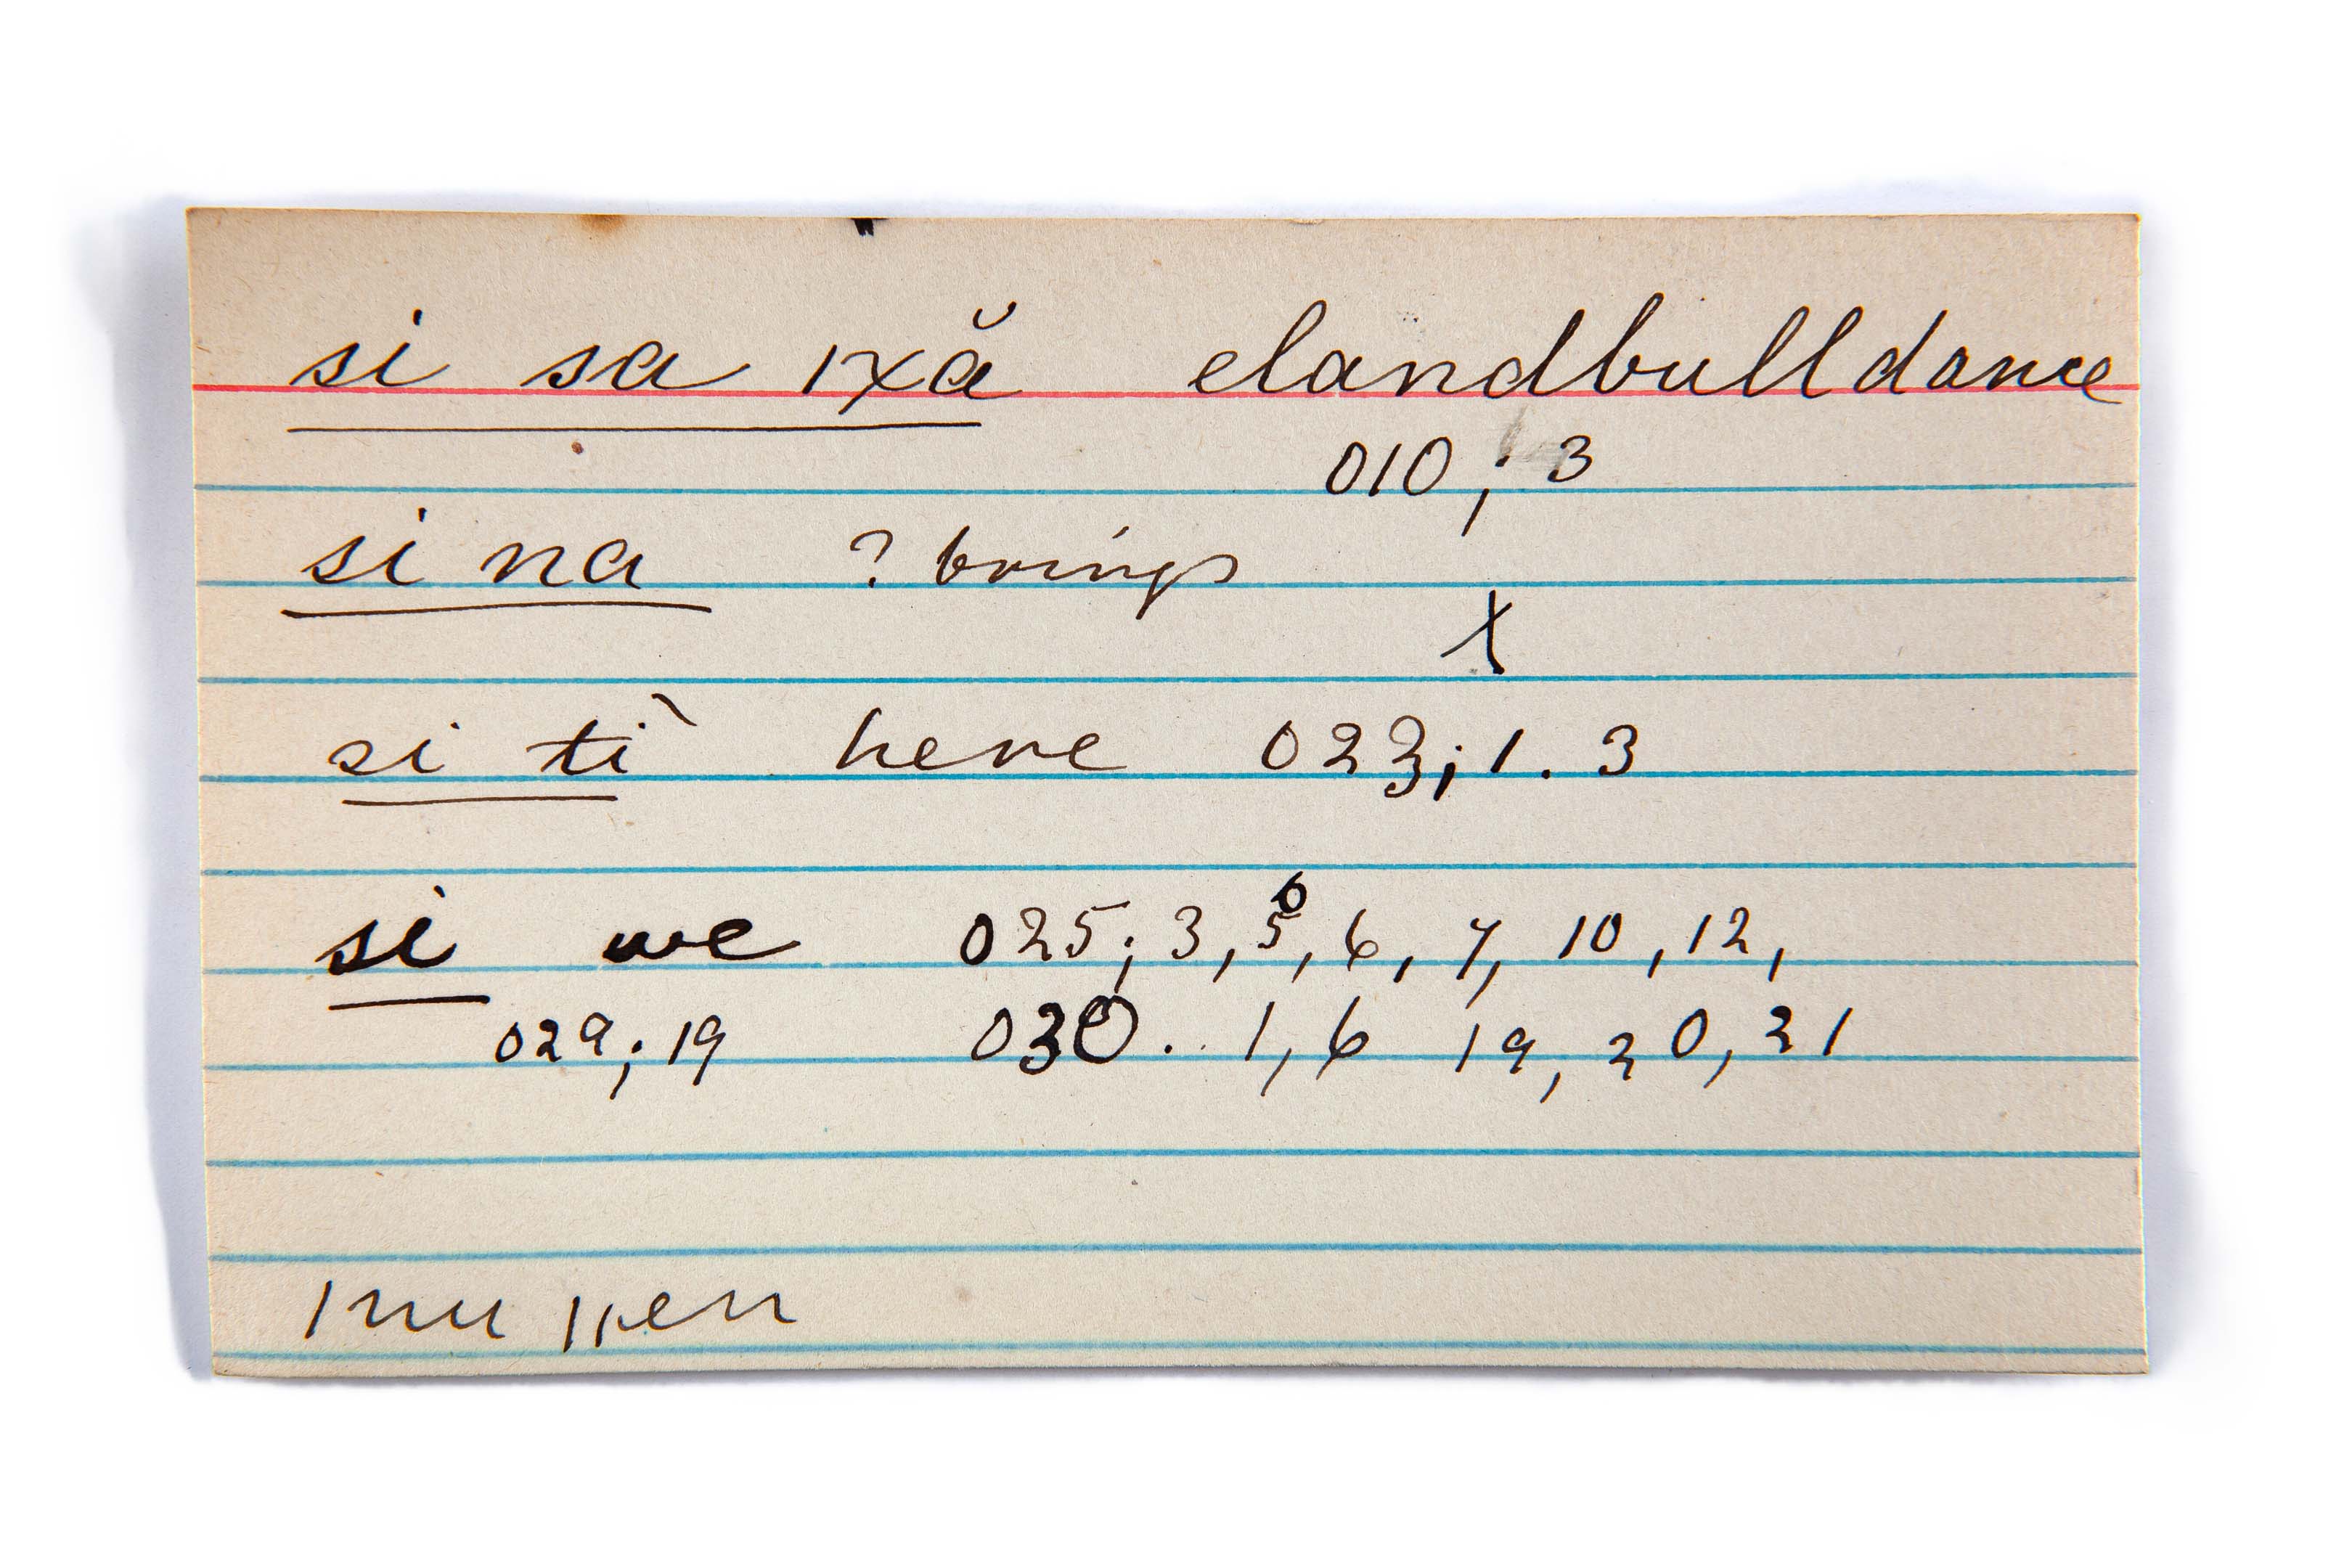 si sa ǀxă elandbulldance
010; 3
si na ? brings
X
si tì here 023; 1. 3
si we 025; 3, 5, 6, 7, 10, 12,
6
029; 19 030.. 1, 6 19, 20, 21
ǀnu ǁen